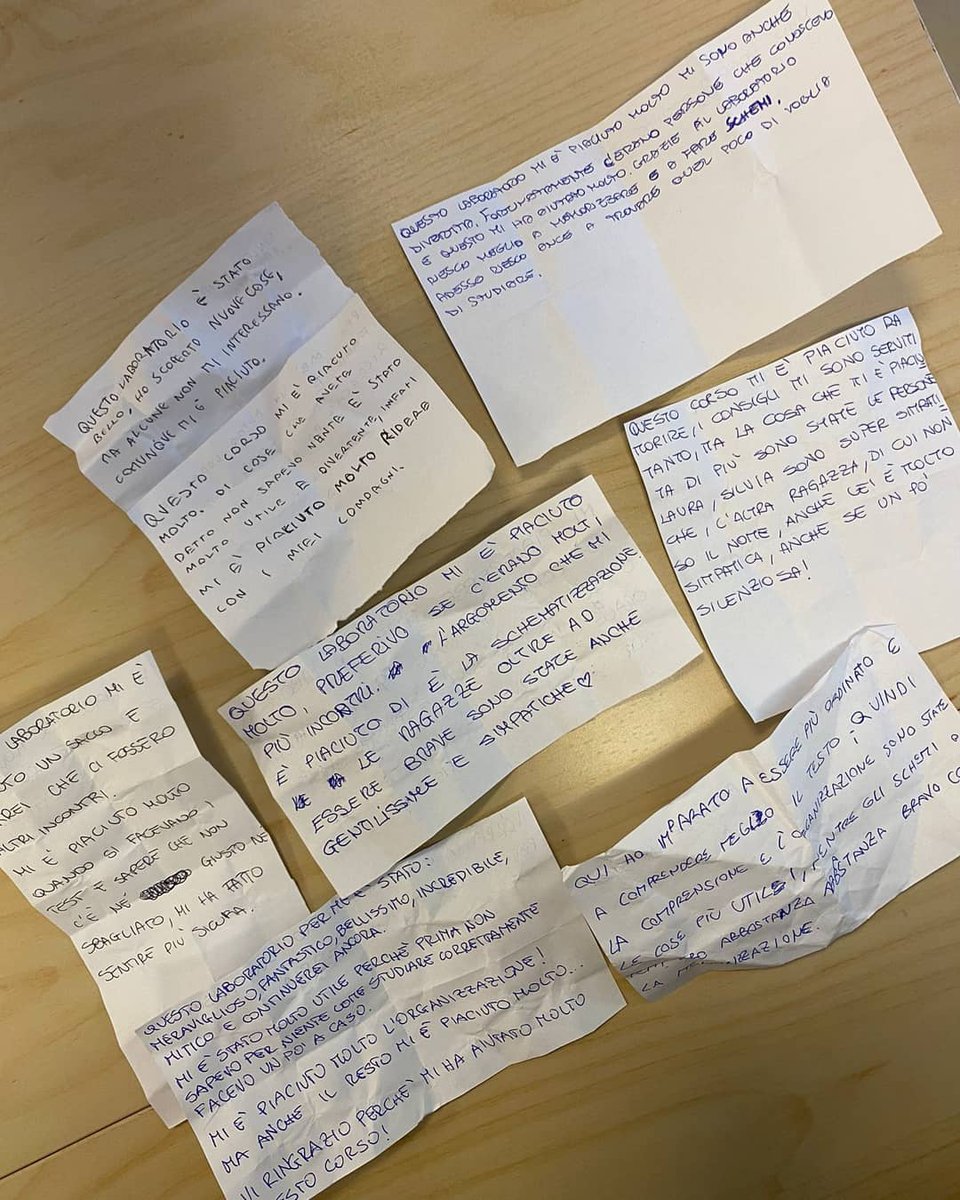 QUESTO LABORATORIO MI È PIACIUTO MOLTO MI SONO ANCHE
DIVERTITA, FORTUNATAMENTE C'ERANO PERSONE CHE CONOSCEVO
E QUESTO MI HA AIUTATO MOLTO. GRAZIE AL LABORATORIO
RIESCO MEGLIO A MEMORIZZARE E A FARE SCHEMI,
ADESSO RIESCO ANCE A TROVARE QUEL POCO DI VOGLIA
DI STUDIARE.
QUESTO LABORATORIO È STATO
BELLO, HO SCOPERTO NUOVE COSE,
MA ALCUNE NON MI INTERESSANO.
COMUNQUE MI È PIACIUTO.
QUESTO CORSO MI E' PIACIUTO
MOLTO. DI COSE CHE AVETE
DETTO NON SAPEVO NENTE È STATO
MOLTO UTILE E DIVERTENTE, INFATI
MI È PIACIUTO MOLTO RIDERE
CON I MIEI COMPAGNI.
QUESTO CORSO MI È PIACIUTO DA
MORIRE, I CONSIGLI MI SONO SERVITI
TANTO, MA LA COSA CHE MI È PIACIU
TA DI PIÙ SONO STATE LE PERSONE
LAURA, SILVIA SONO SUPER SIMPATI
CHE, L'ALTRA RAGAZZA, DI CUI NON
SO IL NOME, ANCHE LEI È MOLTO
SIMPATICA, ANCHE SE UN PO'
SILENZIOSA!
QUESTO LABORATORIO MI È PIACIUTO
MOLTO, PREFERIVO SE C'ERANO MOLTI
PIÙ INCONTRI. L'ARGOMENTO CHE MI
È PIACIUTO DI È LA SCHEMATIZZAZIONE.
LE RAGAZZE OLTRE AD
ESSERE BRAVE SONO STATE ANCHE
GENTILISSIME E SIMPATICHE ♡
LABORATORIO MI È
UTO UN SACCO E
REI CHE CI FOSSERO
ALTRI INCONTRI.
MI È PIACIUTO MOLTO
QUANDO SI FACEVANO I
TEST E SAPERE CHE NON
C'È NÉ GIUSTO NE
SBAGLIATO, MI HA FATTO
SENTIRE PIÙ SICURA.
QUI HO IMPARATO A ESSERE PIÙ ORDINATO E
A COMPRENDERE MEGLIO IL TESTO, QUINDI
LA COMPRENSIONE E L'ORGANIZZAZIONE SONO STATE
LE COSE PIÙ UTILI, MENTRE GLI SCHEMI
ABBASTANZA ABBASTANZA BRAVO CO
LA
QUESTO LABORATORIO PER ME È STATO:
MERAVIGLIOSO, FANTASTICO, BELLISSIMO, INCREDIBILE,
MITICO E CONTINUEREI ANCORA.
MI È STATO MOLTO UTILE PERCHÈ PRIMA NON
SAPEVO PER NIENTE COME STUDIARE CORRETTAMENTE
FACEVO UN PO' A CASO.
MI È PIACIUTO MOLTO L'ORGANIZZAZIONE!
MA ANCHE IL RESTO MI È PIACIUTO MOLTO...
VI RINGRAZIO PERCHÈ MI HA AIUTATO MOLTO
ESTO CORSO!